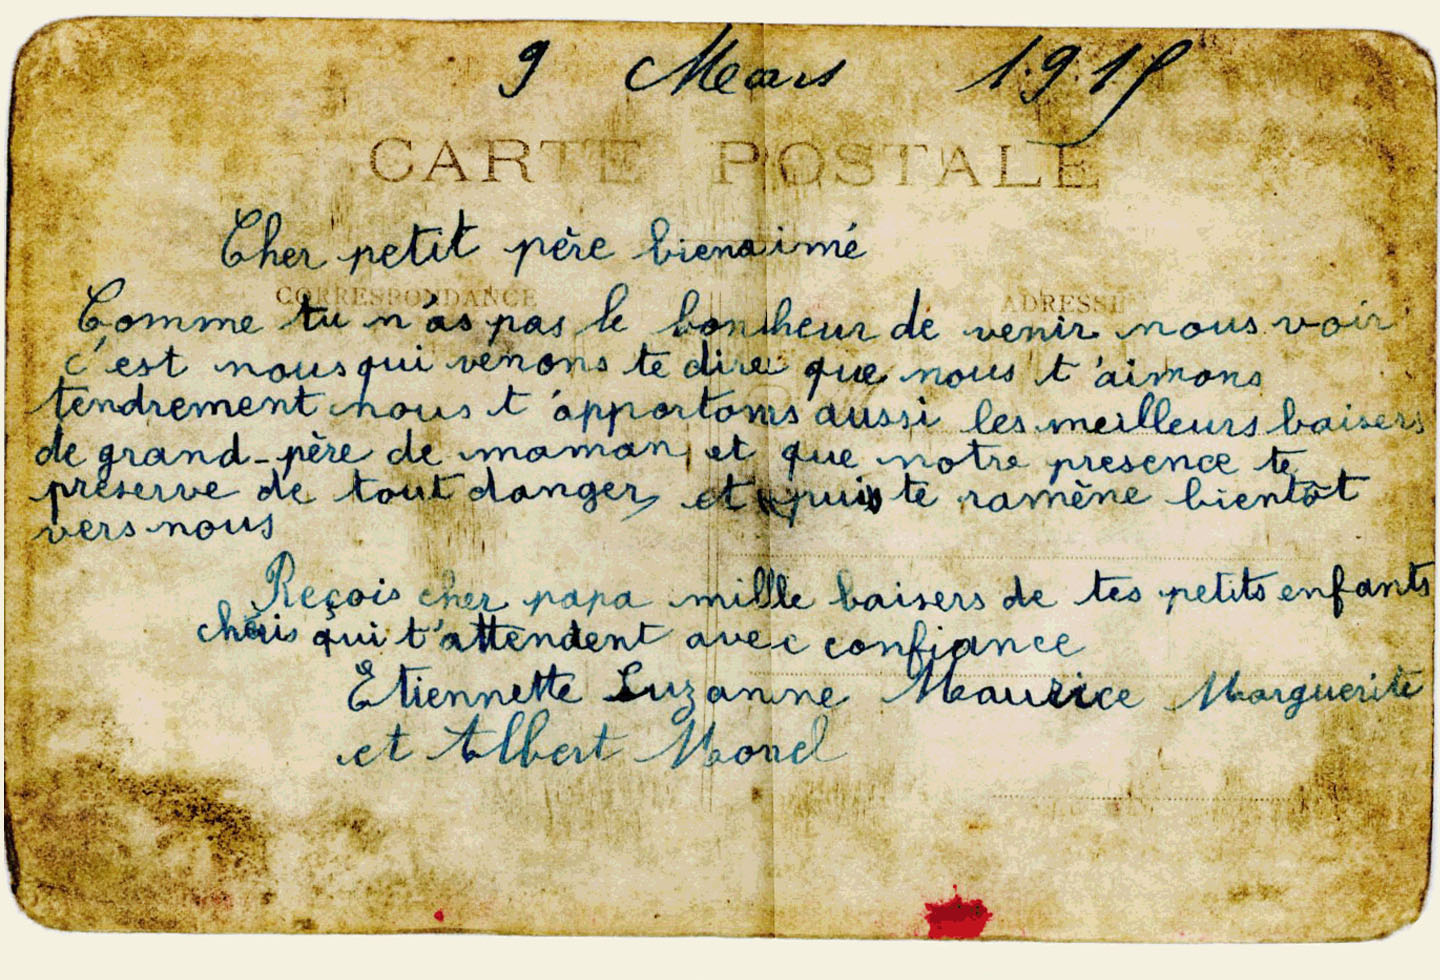 9 Mars 1915
CARTE POSTALE
Cher petit père bienaimé
CORRESPONDANCE ADRESSE
Comme tu n'as pas le bonheur de venir nous voir
c'est nous qui venons te dire que nous t'aimons
tendrement nous t'apportons aussi les meilleurs baisers
de grand-père de maman, et que notre presence te
préserve de tout danger, et puis te ramène bientôt
vers nous
Reçois cher papa mille baisers de tes petits enfants
chéris qui t'attendent avec confiance
Etiennette Suzanne Maurice Marguerite
et Albert